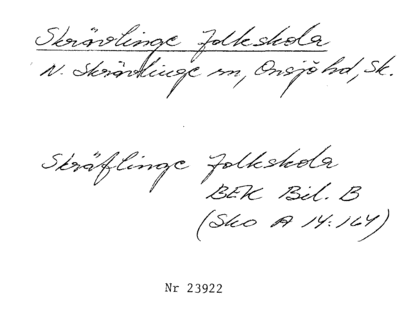 Skrävlinge folkskola
N. Skrävlinge sn, Onsjö hd, Sk.
Skräflinge folkskola
BEK Bil. B
(Sko A 14:164)
Nr 23922